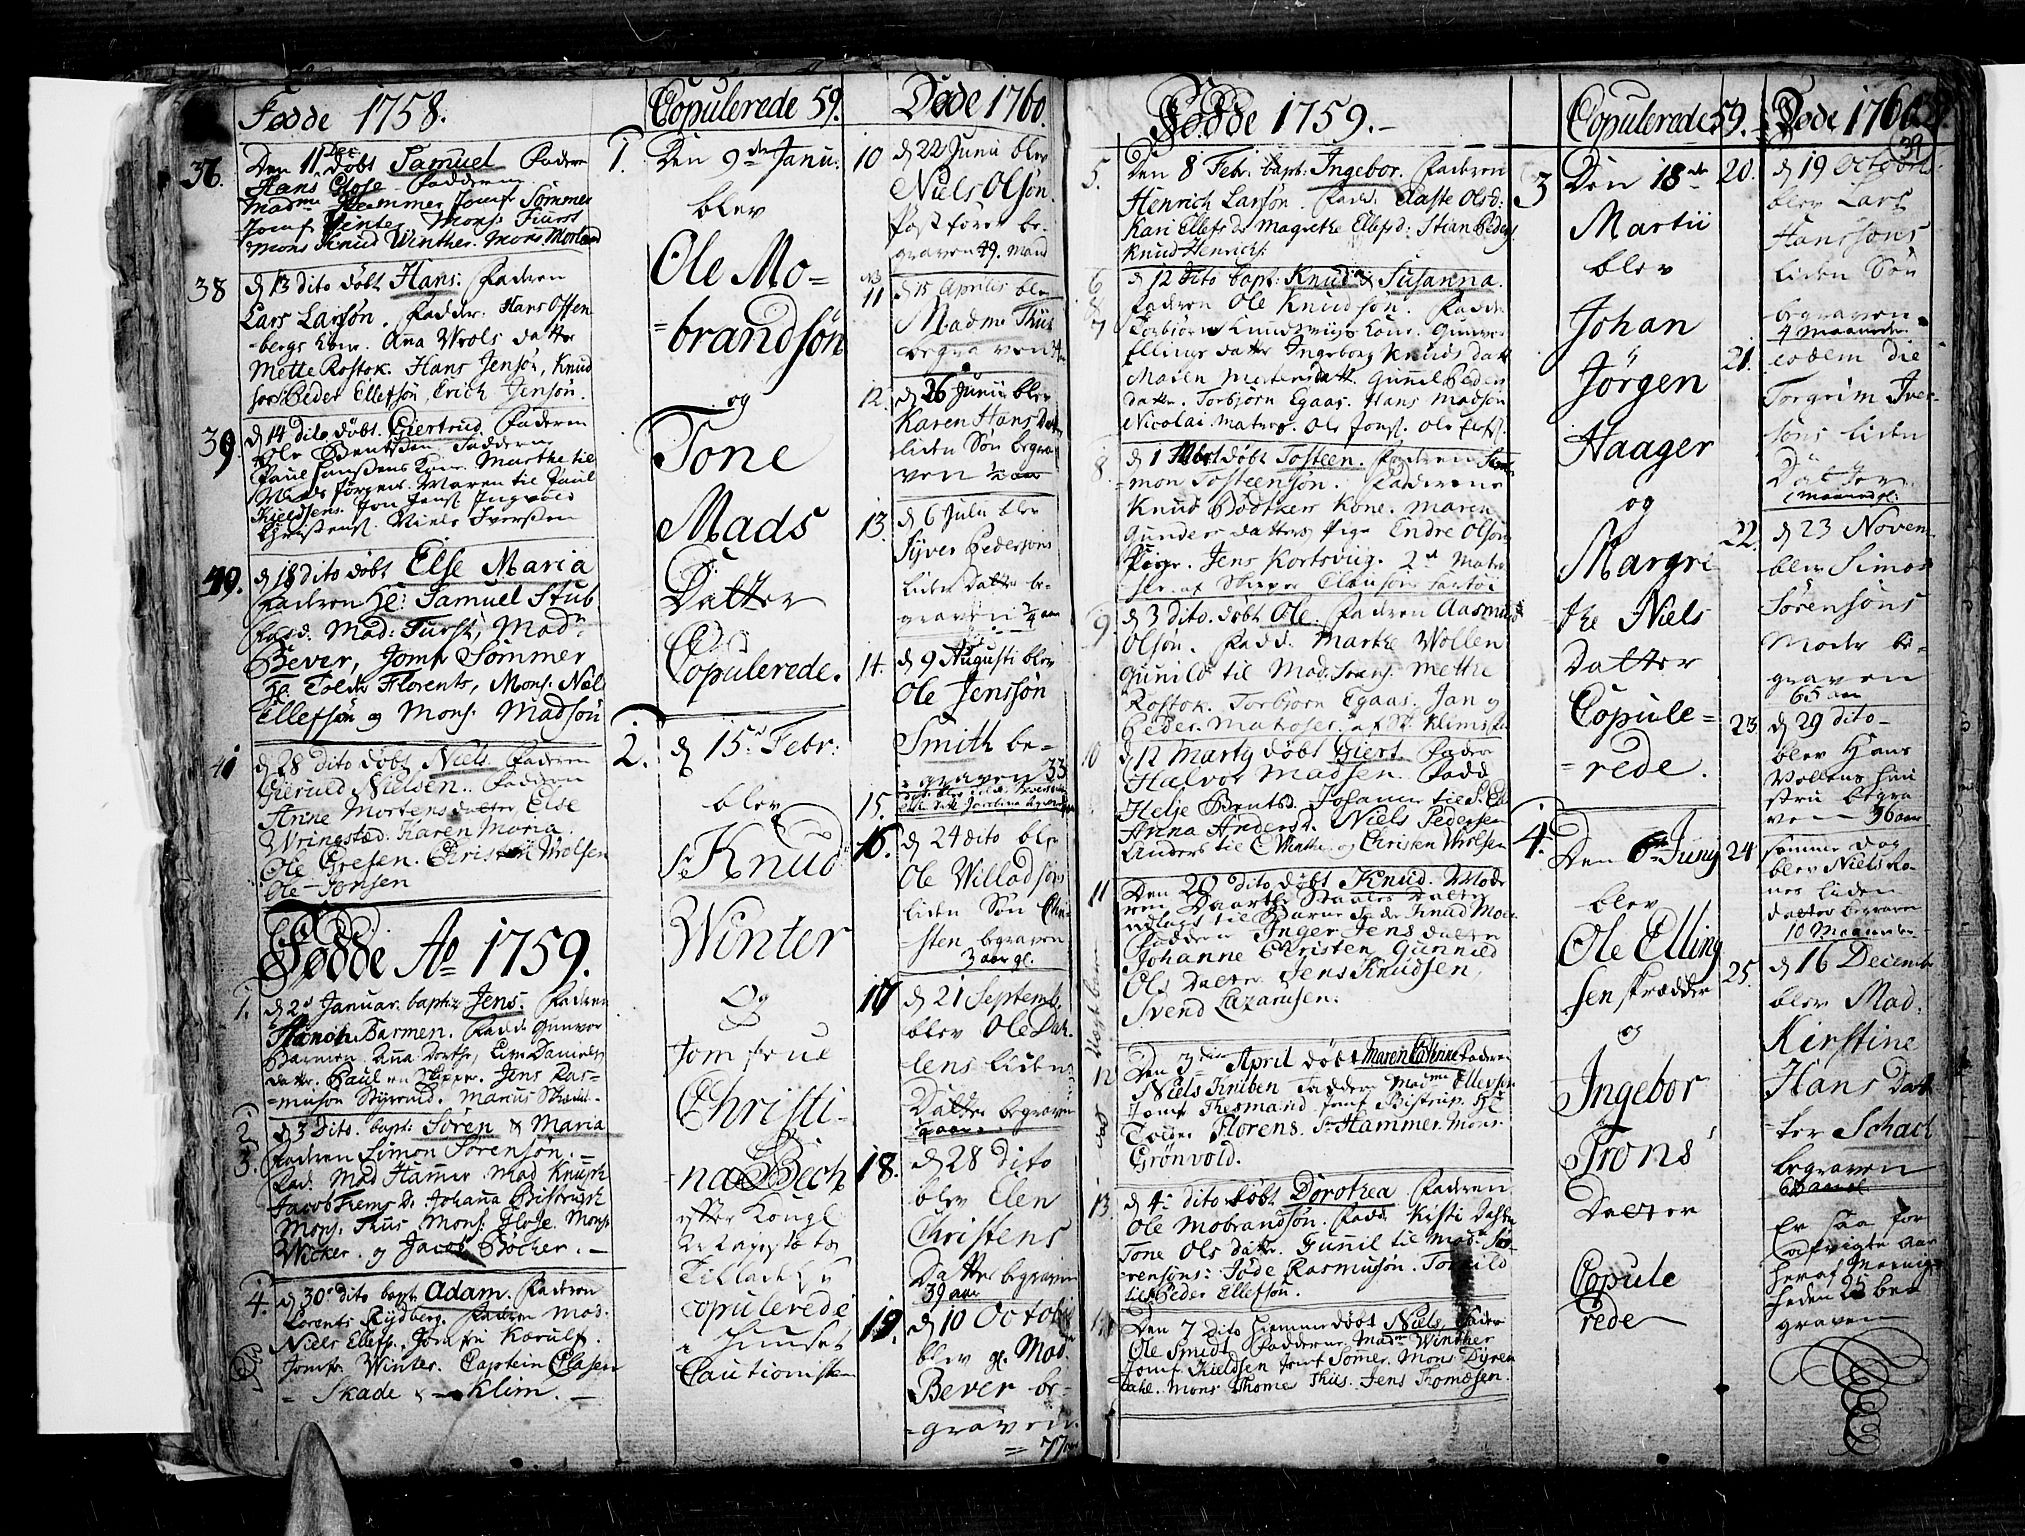 Fødde 1758.
37.
Den 11 Dec. døbt Samuel Faderen
Hans Close Faddere
Madme Hammer Jomf: Sommer
Jomf Winter Mons: Furst
Mons Knud Winther. Mons Morland
38
d 13 dito døbt Hans. Faderen
Lars Larsøn. Fadder. Hans Offen
bergs Kone. Ana Wrols datter
Mette Rostok. Hans Jensøn, Knud
Peder Ellefsøn, Erich Jensøn.
39
d 14 dito døbt. Giertrud. Faderen
Ole Bentsen Faddere
Paul Kone. Marthe til
Mads Jørgens. Maren til Paul
Kieldsens. Jon Jens Ingvold
Christens. Niels Iversen
40.
d 18 dito døbt Else Maria
Faderen Hr: Samuel Stub
Fadd. Mad: Furst, Madm
Bever, Jomfr Sommer
Hr. Tolder Florents, Mons. Niels
Ellefsøn og Mons. Madsøn
41
d 28 dito døbt Niels. Faderen
Gieruld Nielsen. Faddere
Anne Mortens datter, Else
Wringsted. Karen Maria.
Ole Gresen. Christen Wolsen
Ole Jonsen
Fødde Ao 1759.
1.
d 2d Januar. bapt: Jens. Faderen
Barmen. Fadd: Gunvor
Barmen. Ana Dorthe, Liv Daniels
datter. Paul en Skipper. Jens Ras-
musøn Styrmd. Marcus
2.
3.
d 3 dito. bapt: Søren & Maria
Faderen Simon Sørensøn.
Fad. Mad Hamer. Mad Knusk
Jacob Johana Bistrup
Mons. Thus, Mons: Glose, Mons
Wicker. og Jacob Bøcher.
4.
d 30 dito bapt. Adam. Faderen
Lorents Rydberg. Faddere Mad.
Niels Ellefs. Jomfr Karulf.
Jomfr. Winter. Captein Clasen
- Skade & Klim. -
Copulerede 59.
1.
Den 9de Janu.
blev
Ole Mo-
brandsøn
og
Tone
Mads
Datter
Copulerede.
2.
d 15d Febr:
blev
Sr Knud
Winter
Og
Jomfrue
Christi-
na Bech
efter Kongl
Tilladelse
copulerede
i Huuset
Cautionisten
Døde 1760.
10
d 22 Junii blev
Niels Olsøn.
Postfører be-
graven 49. Aar
11
d 15 Aprilis blev
Madme Thus
begraven
12.
d 26 Junii blev
Karen Hans Datter
liden Søn begra
ven 1/2 aar
13.
d 6 Julii blev
Syver Pedersøns
liden Datter be-
graven 1/4 aar
14.
d 9 Augusti blev
Ole Jenssøn
Smith be-
graven 33
15.
16.
d 24 dito blev
Ole Willadsøns
liden Søn Chri
sten begraven
3 aar gl.
17
d 21 Septemb.
blev Ole Dah
lens liden
Datter begraven
18.
d 28 dito
blev Elen
Christens
Datter begraven
39 aar
19.
d 10 Octobr
blev gl. Mad.
Bever be-
graven
77 aar
Fødde 1759.-
5.
Den 8 Febr. bapt. Ingebor. Faderen
Henrich Larsøn. Fadd. Aaste Olsd:
Kari Ellefsdr Magrethe Ellefsd: Stian Peders
Knud Henrichs:
6
&
7
d 12 dito bapt: Knud & Susanna.
Faderen Ole Knudsøn. Faddere
Torbiørn Knudsviigs Kone. Gunvor
Ellings datter Ingeborg Knuds datt
Maren Mortensdatt. Gunnil Peders
datter. Torbjørn Egaas. Hans Madsøn
Nicolai Matros. Ole Jons. Ole Elefs.
8.
d 1 Mart døbt Tosteen. Faderen Sal
mon Tosteensøn. Fadderne
Knud Bødtkers Kone. Maren
Gunders datters Pige Endre Olsøn
Jens Kortsviig. 2de Matro
ser af Skipper Clausøns
9.
d 3 dito. døbt Ole. Faderen Aasmund
Olsøn. Fadd. Marthe Wollen
Gunild til Mad. Mette
Rostok. Torbjørn Egaas. Jan og
Peder. Matroser af Sr Klims
10
d 12 Marty døbt Giert. Fader
Halvor Madsen. Fadd
Helje Bentsd. Johanne til
Anna Andersd. Niels Pedersen
Anders til C Winthr. og Christen Wolsen
11
Den 20 dito døbt Knud. Mode
ren Staales Datter
udlagt til Barne Fader Knud Moe.
Faddere Inger Jens datter
Johanne Christen, Gunnild
Ols Datter. Jens Knudsen,
Svend Lazarusen.
uægte barn
12
Den 3die April døbt Maren Cathrine Faderen
Niels Kniben Faddere Madme Ellevsen
Jomf Thesmand. Jomf Bistrup. Hr
Tolder Florens. Sr Hammer. Mons.
Grønvold.
13.
d 4de dito døbt Dorothea Faderen
Ole Mobrandsøn. Fadd: Kisti Dahlen
Tone Ols datter. Gunnil til Mads Sø-
rensøns: Jøde Rasmusøn. Torkild
til Peder Ellefsøn.
14
Den 7 dito hiemmedøbt Niels. Fader
Ole Smidt Fadderne. Madme Winther
Jomf Kieldsen Jomf Somer. Mons Dyren
dahl. Mons Thome Thus. Jens Thomesen.
Copulerede 59.
3
Den 18de
Martii
blev
Johan
Jörgen
Haager
og
Margre
the Niels
Datter
Copule-
rede.
4.
Den 6te Juny
blev
Ole Elling
sen skrædder
og
Ingebor
Trons
Datter
Copule
rede
Døde 1760.
39
20.
d 19 October
blev Lars
Hanssøns
liden Søn
begraven
4 Maaneder.
21.
eodem die
Torgrim Iver
søns liden
Datter
1 maaned gl.
22.
d 23 Novem
blev Simon
Sørensøns
Moder be-
graven
65 aar
23
d 29 dito
blev Hans
Vollens hu
stru begra
ven 36 aar
24
samme dag
blev Niels Ro
nes liden
datter begraven
10 Maaneder.
25.
d 16 Decemb
blev Mad.
Kirstine
Hans Dat
ter Schach
begraven
Er saa for
afvigte aar
heraf Menig
heden 25 be
graven